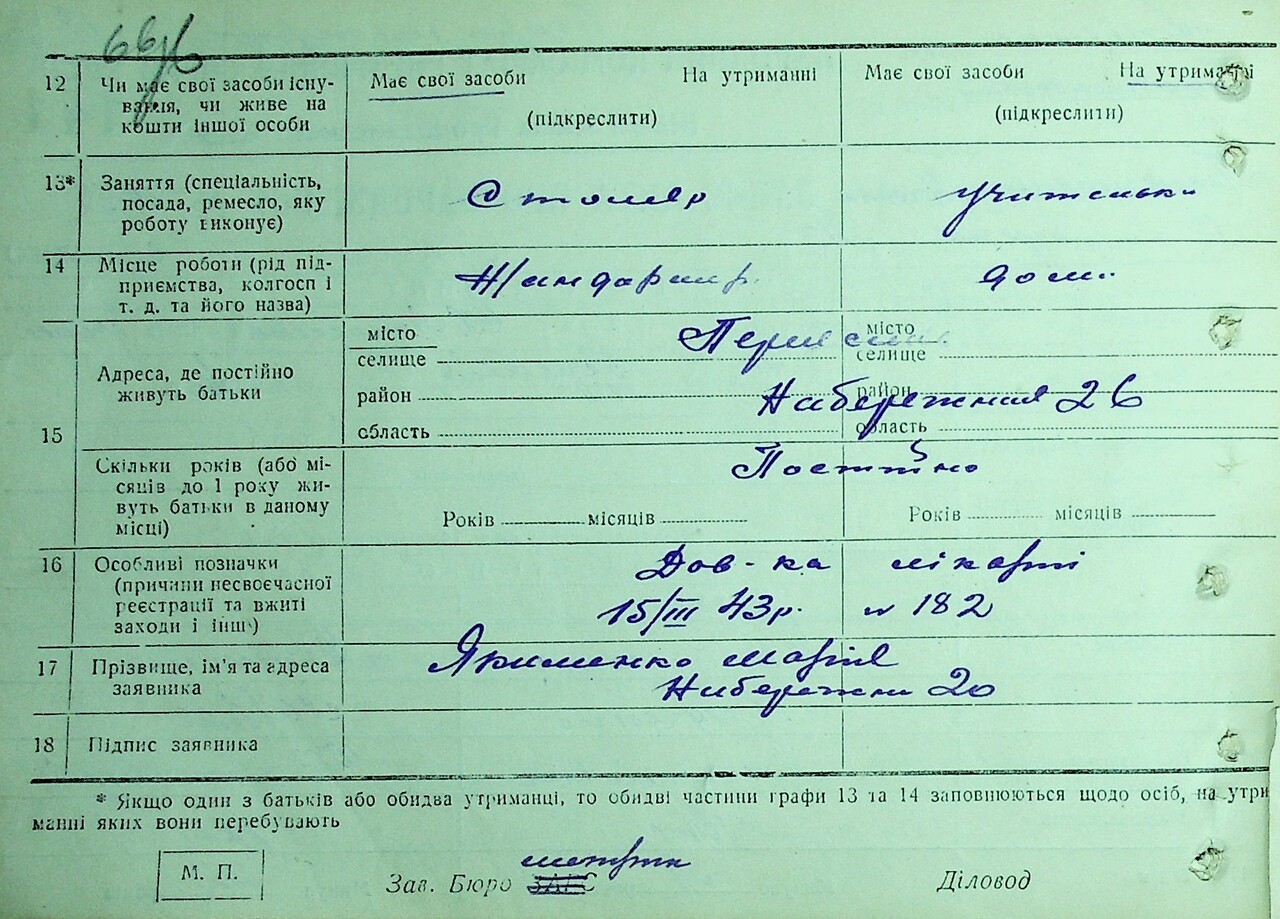 12 Чи має свої засоби існу- Має свої засоби На утриманні Має свої засоби На утриманні
вання, чи живе на (підкреслити) (підкреслити)
кошти іншої особи
13* Заняття (спеціальність, Столяр Учителька
посада, ремесло, яку
роботу виконує)
14 Місце роботи (рід під- Жандарм. дом.
приємства, колгосп і
т. д. та його назва)
15 Адреса, де постійно живуть батьки
місто місто
селище селище
район Набережная 26 район
область область
Скільки років (або мі- Постійно
сяців до 1 року жи-
вуть батьки в даному Років місяців Років місяців
місці)
16 Особливі позначки Дов-ка лікарні
(причини несвоєчасної
реєстрації та вжиті 15/III 43р. № 182
заходи і інш.)
17 Прізвище, ім'я та адреса Якименко Марія
заявника Набережна 20
18 Підпис заявника
* Якщо один з батьків або обидва утриманці, то обидві частини графи 13 та 14 заповнюються щодо осіб, на утри
манні яких вони перебувають
М. П. Зав. Бюро ЗАГС метрик Діловод